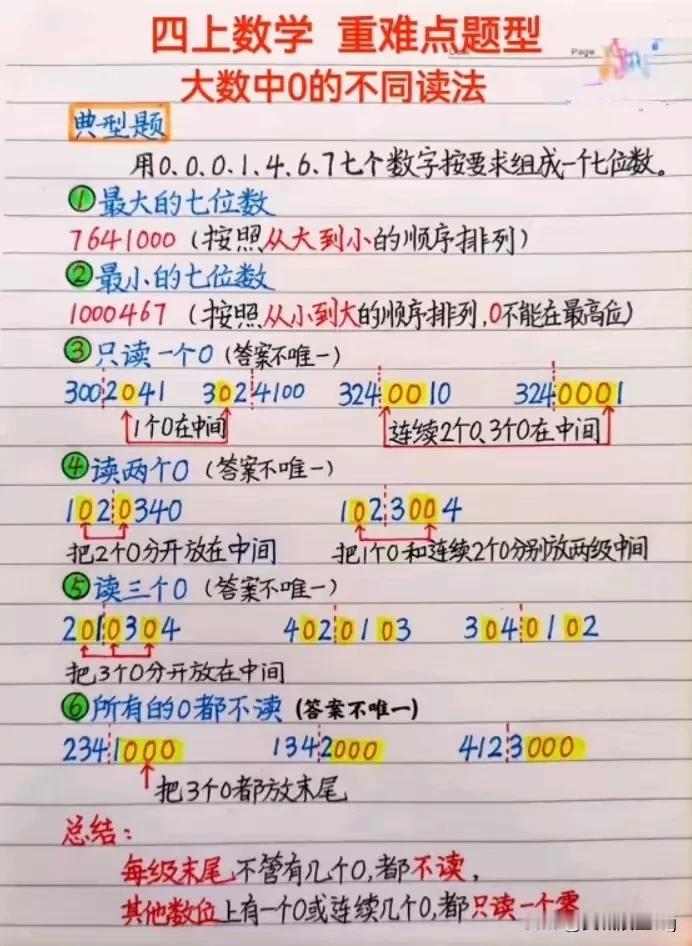 四上数学 重难点题型
Page
大数中0的不同读法
典型题
用0、0、0、1、4、6、7七个数字按要求组成一个七位数。
①最大的七位数
7641000（按照从大到小的顺序排列）
②最小的七位数
1000467（按照从小到大的顺序排列,0不能在最高位）
③只读一个0（答案不唯一）
3002041 3024100 3240010 3240001
1个0在中间 连续2个0、3个0在中间
④读两个0（答案不唯一）
1020340 1023004
把2个0分开放在中间 把1个0和连续2个0分别放两级中间
⑤读三个0（答案不唯一）
2010304 4020103 3040102
把3个0分开放在中间
⑥所有的0都不读（答案不唯一）
2341000 1342000 4123000
把3个0都放末尾
总结：
每级末尾不管有几个0,都不读，
其他数位上有一个0或连续几个0,都只读一个零